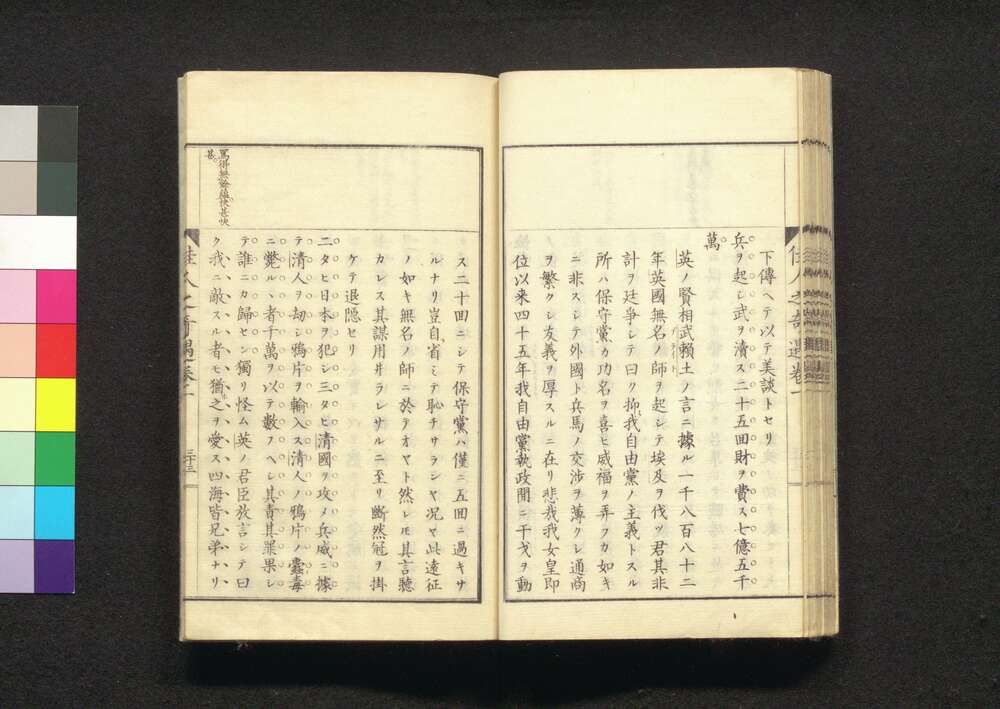 佳人之奇遇卷一
下傳ヘテ以テ美談トセリ
兵ヲ起シ武ヲ瀆ス二十五回財ヲ費ス七億五千
萬
英ノ賢相武賴土ノ言ニ據ル一千八百八十二
年英國無名ノ師ヲ起シテ埃及ヲ伐ツ君其非
計ヲ廷爭シテ曰ク抑我自由黨ノ主義トスル
所ハ保守黨カ功名ヲ喜ヒ威福ヲ弄フカ如キ
ニ非スシテ外國ト兵馬ノ交渉ヲ薄クシ通商
ヲ繁クシ友義ヲ厚スルニ在リ悲哉我女皇即
位以来四十五年我自由黨執政間ニ干戈ヲ動
ス二十回ニシテ保守黨ハ僅ニ五回ニ過キサ
ルナリ豈自省ミテ恥チサランヤ况ヤ此遠征
ノ如キ無名ノ師ニ於テオヤト然レモ其言聽
カレス其謀用井ラレサルニ至リ斷然冠ヲ掛
ケテ退隠セリ
二タヒ日本ヲ犯シ三タヒ清國ヲ攻メ兵威ニ據
テ清人ヲ刧シ鴉片ヲ輸入ス清人ノ鴉片ノ蠹毒
ニ斃ルヽ者千萬ヲ以テ數フヘシ其責其罪果シ
テ誰ニカ歸セン獨リ怪ム英ノ君臣放言シテ曰
ク我ニ敵スル者モ猶之ヲ愛ス四海皆兄弟ナリ
佳人之奇遇卷一
三十三